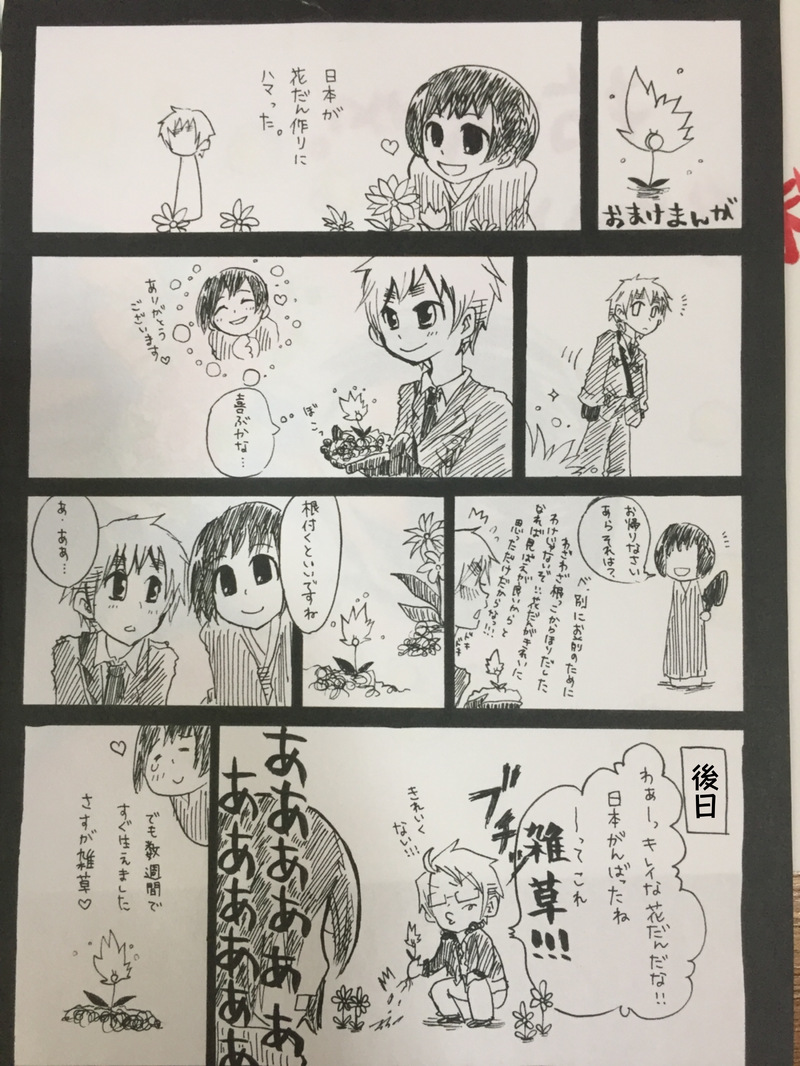 おまけまんが
日本が
花だん作りに
ハマった。
ありがとう
ございます♡
喜ぶかな…
ぼこっ
お帰りなさい
あらそれは?
べ、別にお前のために
わざわざ根っこからほりだした
わけじゃないぞ…花だんがきれいに
なれば見ばえが良いからと
思っただけだからなっ…!!!
ドキ
ドキ
根付くといいですね
あ・ああ…
後日
わぁーっキレイな花だんだな!!
日本がんばったね
ーってこれ
雑草!!!
ブチッ
きれいく
ない!!!
ああああああ
あああああああ
でも数週間で
すぐ生えました
さすが雑草♡